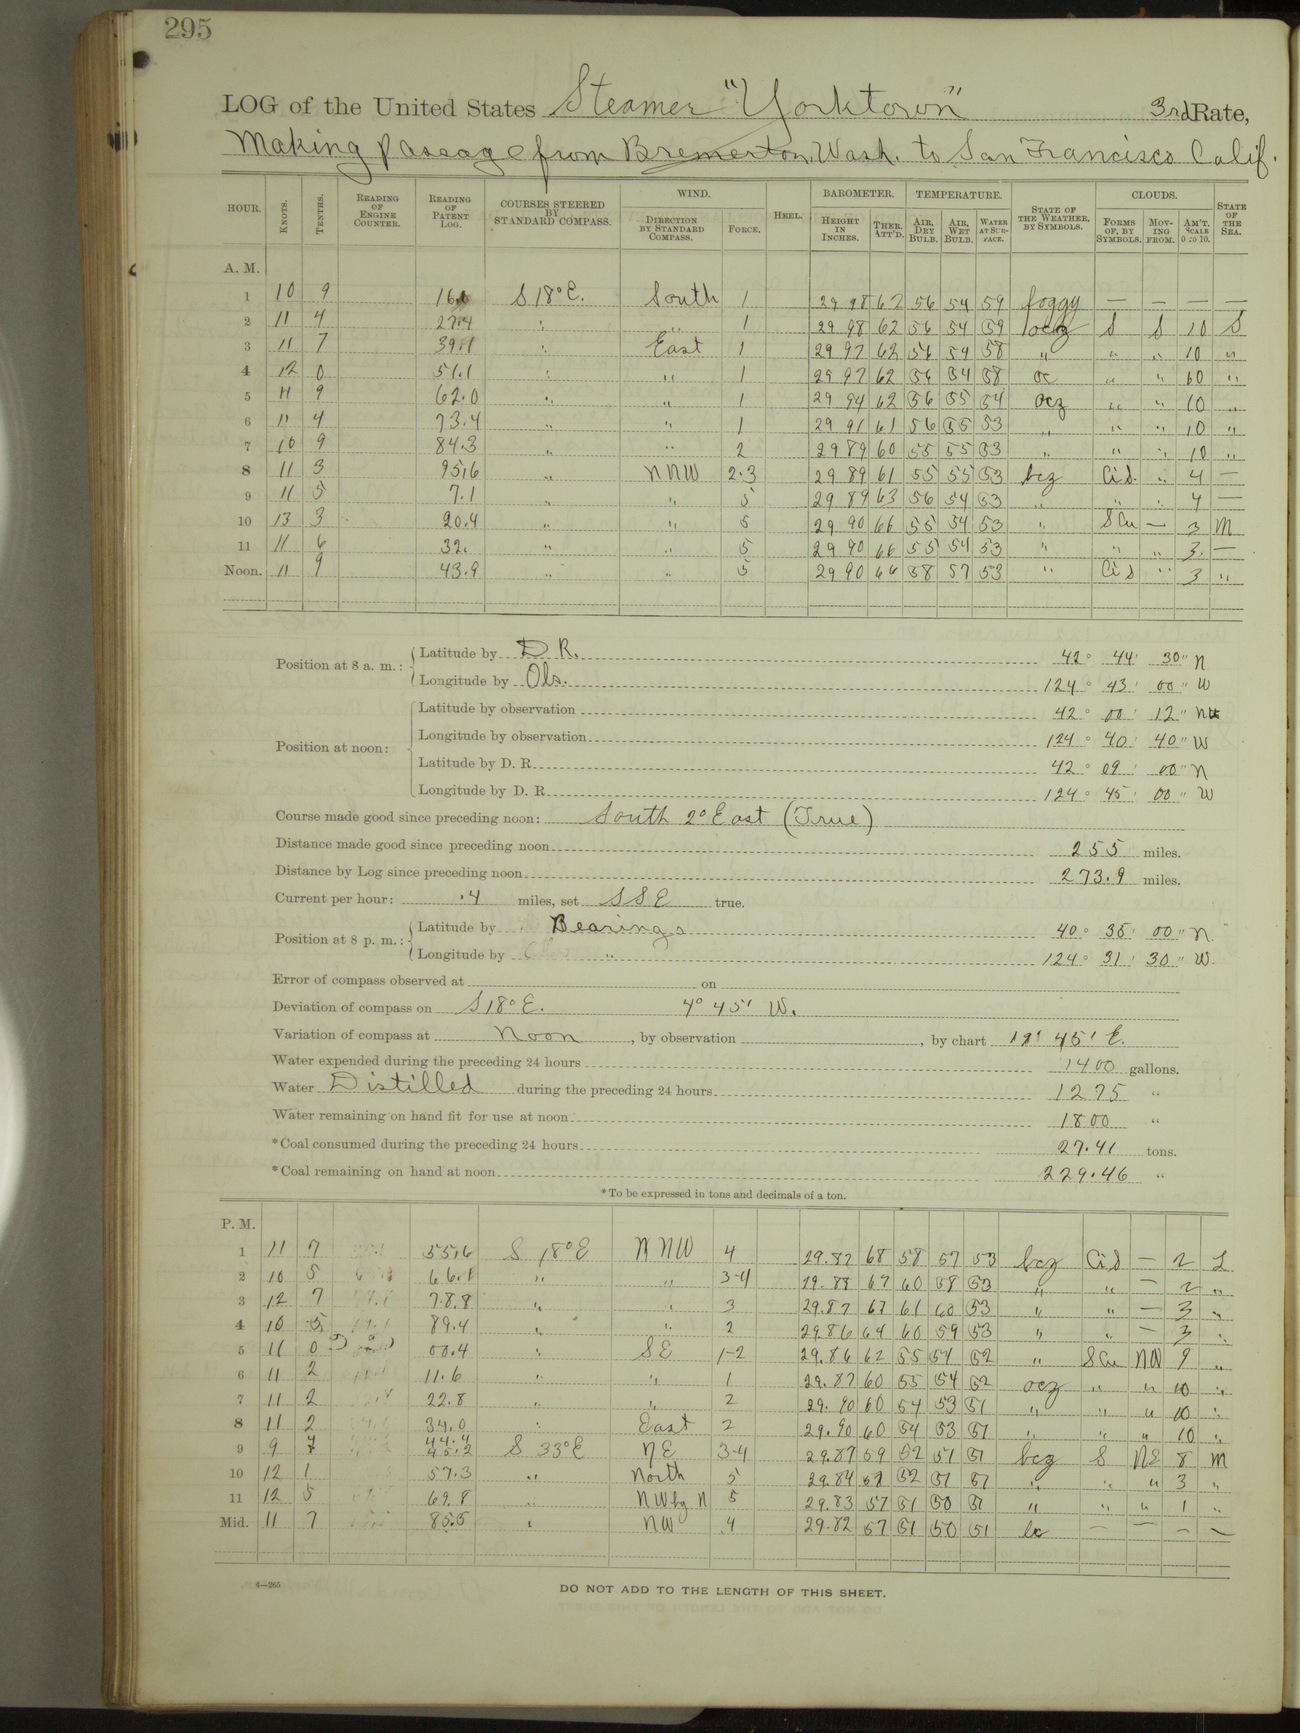 295
LOG of the United States Steamer "Yorktown" 3rd Rate,
Making passage from Bremerton, Wash. to San Francisco Calif.
HOUR. KNOTS. TENTHS. READING OF ENGINE COUNTER. READING OF PATENT LOG. COURSES STEERED BY STANDARD COMPASS. WIND. DIRECTION BY STANDARD COMPASS. FORCE. HEEL. BAROMETER. HEIGHT IN INCHES. THER. ATT'D. TEMPERATURE. AIR, DRY BULB. AIR, WET BULB. WATER AT SURFACE. STATE OF THE WEATHER, BY SYMBOLS. CLOUDS. FORMS OF, BY SYMBOLS. MOVING FROM. AM'T. SCALE 0 TO 10. STATE OF THE SEA.
A. M.
1 10 9 S 18° E. South 1 29 98 62 56 54 59 foggy — — — —
2 11 4 27.4 " " 1 29 98 62 56 54 59 S S 10 S
3 11 7 39.1 " East 1 29 97 62 56 54 58 " " " 10 "
4 12 0 51.1 " " 1 29 97 62 56 54 58 oc " " 10 "
5 11 9 62.0 " " 1 29 94 62 56 55 54 ocz " " 10 "
6 11 4 73.4 " " 1 29 91 61 56 55 53 " " " 10 "
7 10 9 84.3 " " 2 29 89 60 55 55 53 " " " 10 "
8 11 3 95.6 " NNW 2-3 29 89 61 55 55 53 bcz Ci S. " 4 —
9 11 5 7.1 " " 5 29 89 63 56 54 53 " " " 4 —
10 13 3 20.4 " " 5 29 90 66 55 54 53 " S Cu — 3 M
11 11 6 32. " " 5 29 90 66 55 54 53 " " " 3. —
Noon. 11 9 43.9 " " 5 29 90 66 58 57 53 " Ci S " 3 "
Position at 8 a. m.: Latitude by D R. 42° 44' 30" N
Longitude by Obs. 124° 43' 00" W
Position at noon: Latitude by observation 42° 00' 12" N
Longitude by observation 124° 40' 40" W
Latitude by D. R. 42° 09' 00" N
Longitude by D. R. 124° 45' 00" W
Course made good since preceding noon: South 2° East (True)
Distance made good since preceding noon 255 miles.
Distance by Log since preceding noon 273.9 miles.
Current per hour: .4 miles, set SSE true.
Position at 8 p. m.: Latitude by Bearings 40° 38' 00" N.
Longitude by " 124° 31' 30" W.
Error of compass observed at on
Deviation of compass on S 18° E. 4° 45' W.
Variation of compass at Noon, by observation , by chart 45' E.
Water expended during the preceding 24 hours 1400 gallons.
Water Distilled during the preceding 24 hours 1275 "
Water remaining on hand fit for use at noon 1800 "
*Coal consumed during the preceding 24 hours 27.41 tons.
*Coal remaining on hand at noon 229.46 "
*To be expressed in tons and decimals of a ton.
P. M.
1 11 7 55.6 S 18° E NNW 4 29.87 68 58 57 53 bcz Ci S — 2 L
2 10 5 66.1 " " 3-4 29.88 67 60 58 53 " " — 2 "
3 12 7 78.8 " " 3 29.87 67 61 60 53 " " — 3 "
4 10 5 89.4 " " 2 29.86 64 60 59 53 " " — 3 "
5 11 0 00.4 " SE 1-2 29.86 62 55 54 52 " S Cu NW 9 "
6 11 2 11.6 " " 1 29.87 60 55 54 52 ocz " " 10 "
7 11 2 22.8 " " 2 29.90 60 54 53 51 " " " 10 "
8 11 2 34.0 " East 2 29.90 60 54 53 51 " " " 10 "
9 9 S 33° E NE 3-4 29.87 59 52 51 51 bcz S NE 8 M
10 12 1 57.3 " North 5 29.84 57 52 51 51 " " " 3 "
11 12 5 69.8 " NW by N 5 29.83 57 51 50 51 " " " 1 "
Mid. 11 7 " NW 4 29.82 57 51 50 51 bc — — — —
4—265
DO NOT ADD TO THE LENGTH OF THIS SHEET.